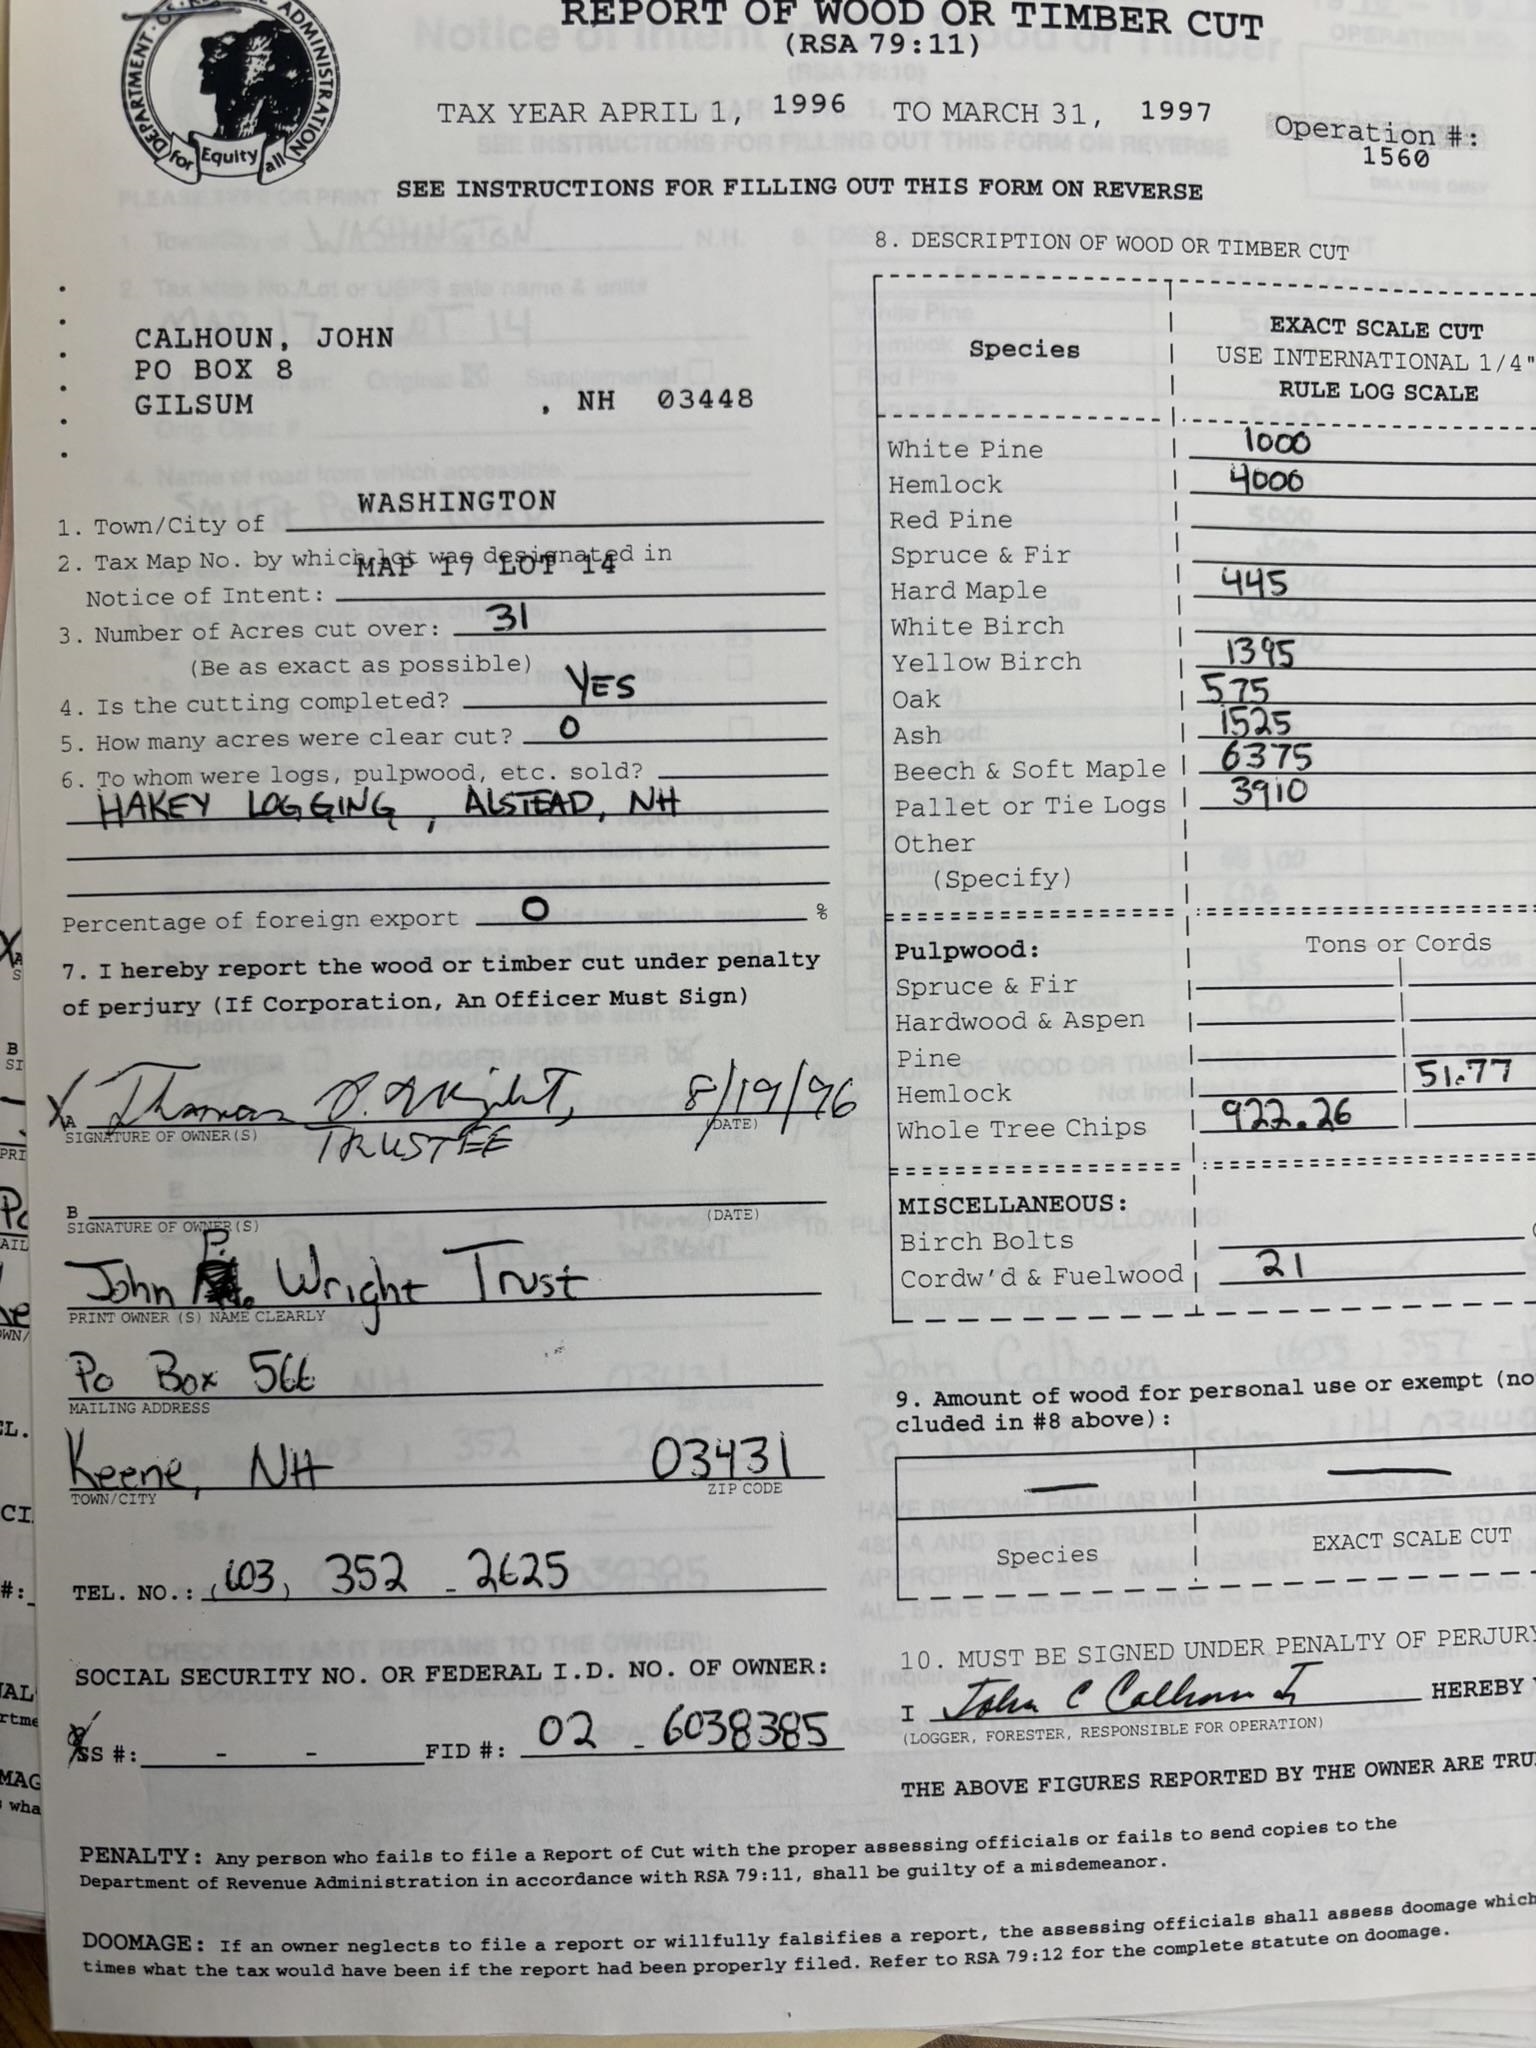 DEPARTMENT OF REVENUE ADMINISTRATION
for Equity all
REPORT OF WOOD OR TIMBER CUT
(RSA 79:11)
TAX YEAR APRIL 1, 1996 TO MARCH 31, 1997
Operation #:
1560
SEE INSTRUCTIONS FOR FILLING OUT THIS FORM ON REVERSE
CALHOUN, JOHN
PO BOX 8
GILSUM , NH 03448
1. Town/City of WASHINGTON
2. Tax Map No. by which lot was designated in
Notice of Intent: MAP 17 LOT 14
3. Number of Acres cut over: 31
(Be as exact as possible)
4. Is the cutting completed? YES
5. How many acres were clear cut? 0
6. To whom were logs, pulpwood, etc. sold?
HAKEY LOGGING, ALSTEAD, NH
Percentage of foreign export 0 %
7. I hereby report the wood or timber cut under penalty
of perjury (If Corporation, An Officer Must Sign)
X A Thomas P. Wright, 8/19/96
SIGNATURE OF OWNER(S) (DATE)
TRUSTEE
B
SIGNATURE OF OWNER(S) (DATE)
John P. Wright Trust
PRINT OWNER (S) NAME CLEARLY
Po Box 566
MAILING ADDRESS
Keene, NH 03431
TOWN/CITY ZIP CODE
TEL. NO.: (603) 352 - 2625
SOCIAL SECURITY NO. OR FEDERAL I.D. NO. OF OWNER:
SS #: - - FID #: 02 - 6038385
8. DESCRIPTION OF WOOD OR TIMBER CUT
Species
EXACT SCALE CUT
USE INTERNATIONAL 1/4"
RULE LOG SCALE
White Pine 1000
Hemlock 4000
Red Pine
Spruce & Fir
Hard Maple 445
White Birch
Yellow Birch 1395
Oak 575
Ash 1525
Beech & Soft Maple 6375
Pallet or Tie Logs 3910
Other
(Specify)
Pulpwood: Tons or Cords
Spruce & Fir
Hardwood & Aspen
Pine
Hemlock 51.77
Whole Tree Chips 922.26
MISCELLANEOUS:
Birch Bolts
Cordw'd & Fuelwood 21
9. Amount of wood for personal use or exempt (no
cluded in #8 above):
Species EXACT SCALE CUT
10. MUST BE SIGNED UNDER PENALTY OF PERJURY
I John C Calhoun Jr HEREBY
(LOGGER, FORESTER, RESPONSIBLE FOR OPERATION)
THE ABOVE FIGURES REPORTED BY THE OWNER ARE TRU
PENALTY: Any person who fails to file a Report of Cut with the proper assessing officials or fails to send copies to the
Department of Revenue Administration in accordance with RSA 79:11, shall be guilty of a misdemeanor.
DOOMAGE: If an owner neglects to file a report or willfully falsifies a report, the assessing officials shall assess doomage which
times what the tax would have been if the report had been properly filed. Refer to RSA 79:12 for the complete statute on doomage.